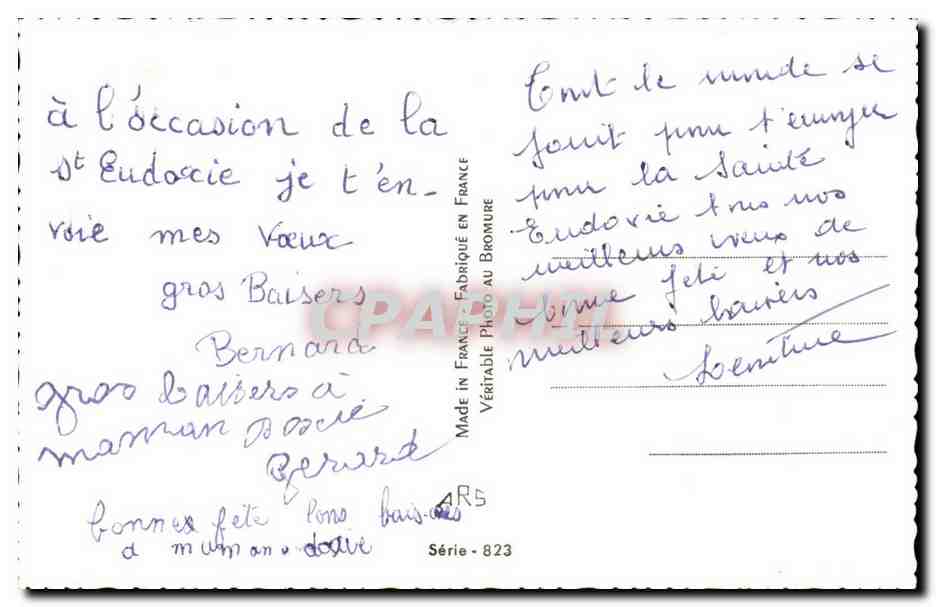 à l'occasion de la
St Eudoxie je t'en-
voie mes Vœux
gros Baisers
Bernard
gros baisers à
maman doxie
Gérard
bonnes fête bons baisers
a muman doxie
MADE IN FRANCE - FABRIQUÉ EN FRANCE
VÉRITABLE PHOTO AU BROMURE
ARS
Série - 823
CPARHAMA
Tout le monde se
joint pour t'envoyer
pour la Sainte
Eudoxie tous nos
meilleurs vœux de
bonne fête et nos
meilleurs baisers